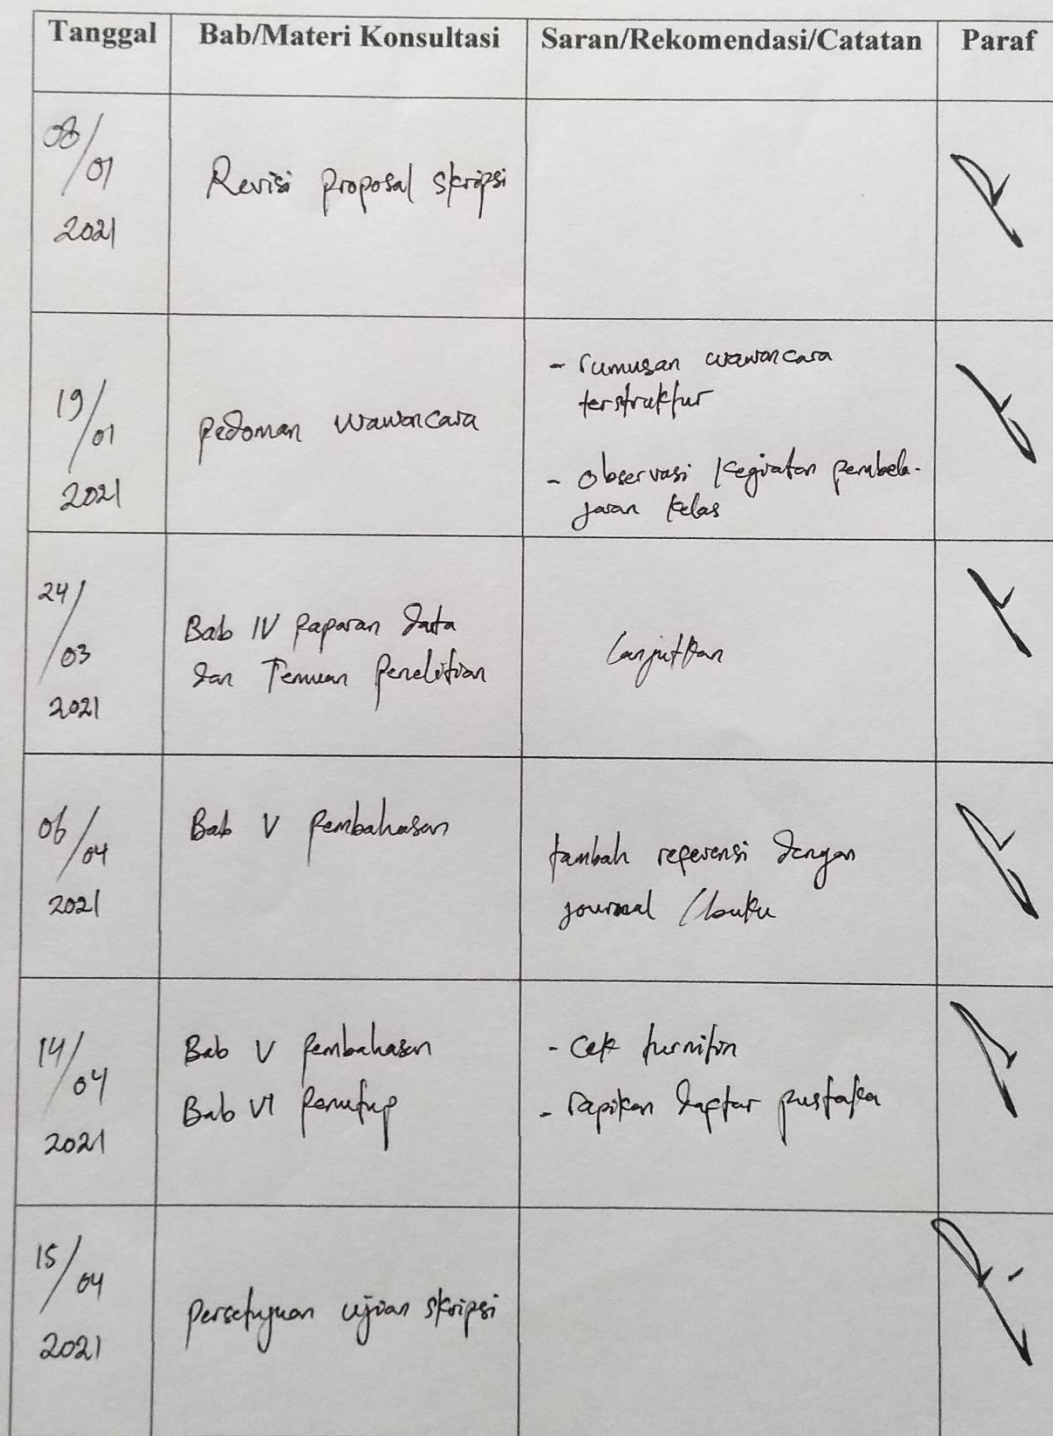 Tanggal Bab/Materi Konsultasi Saran/Rekomendasi/Catatan Paraf
08/01
2021
Revisi proposal skripsi
19/01
2021
pedoman wawancara
- rumusan wawancara
terstruktur
- observasi kegiatan pembela-
jaran kelas
24/03
2021
Bab IV paparan data
dan Temuan penelitian
lanjutkan
06/04
2021
Bab V pembahasan
tambah referensi dengan
journal / buku
14/04
2021
Bab V pembahasan
Bab VI penutup
- cek turnitin
- rapikan daftar pustaka
15/04
2021
persetujuan ujian skripsi